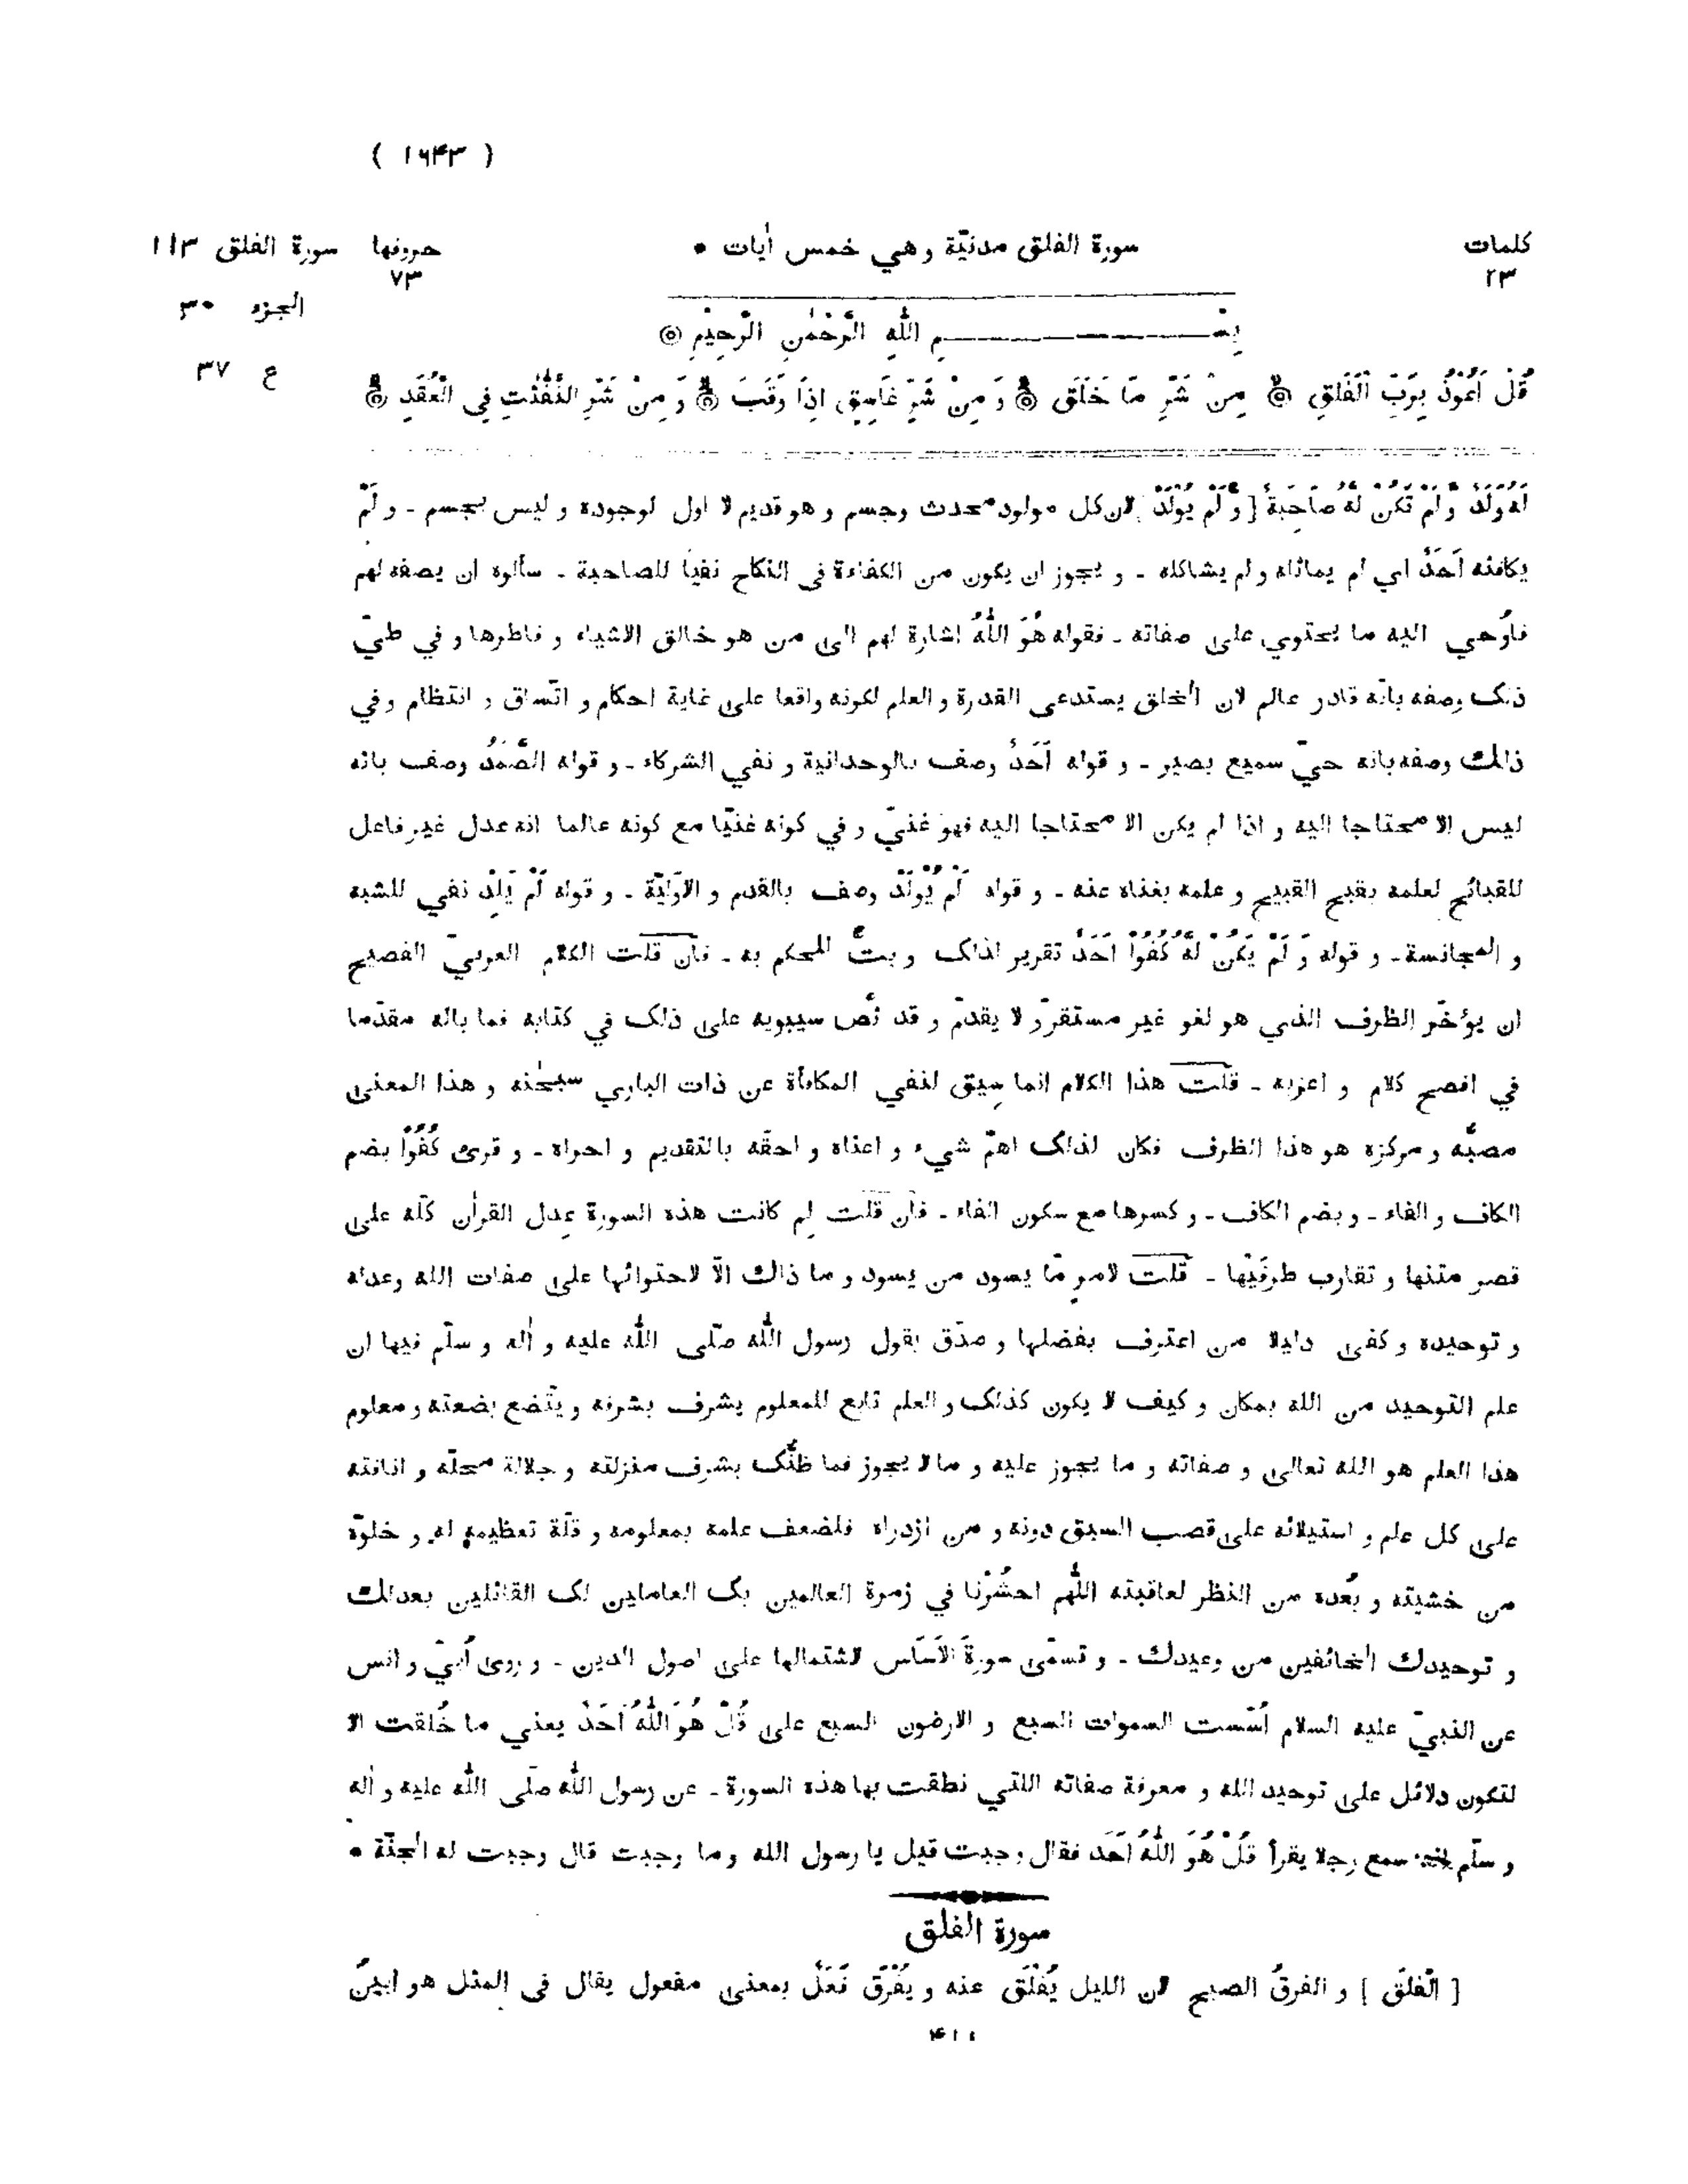 ( ۱۶۴۳ )
كلمات ۲۳ سورة الفلق مدنيّة وهي خمس أيات • حروفها ۷۳ سورة الفلق ۱۱۳
الجزء ۳۰
بِسْــــــــــمِ اللّٰهِ الرَّحْمٰنِ الرَّحِيْمِ ۞
ع ۳۷
قُلْ اَعُوْذُ بِرَبِّ الْفَلَقِ ۞ مِنْ شَرِّ مَا خَلَقَ ۞ وَ مِنْ شَرِّ غَاسِقٍ اِذَا وَقَبَ ۞ وَ مِنْ شَرِّ النَّفّٰثٰتِ فِي الْعُقَدِ ۞
لَهُ وَلَدٌ وَّلَمْ تَكُنْ لَّهُ صَاحِبَةٌ [ وَلَمْ يُوْلَدْ ] لان كل مولود محدث وجسم و هو قديم لا اول لوجوده و ليس بجسم - و لَمْ
يكافئه اَحَدٌ اي لم يماثله و لم يشاكله - و يجوز ان يكون من الكفاءة في النكاح نفيا للصاحبة - سألوه ان يصفه لهم
فاُوحي اليه ما يحتوي على صفاته - فقوله هُوَ اللّٰهُ اشارة لهم الى من هو خالق الاشياء و فاطرها و في طيّ
ذلك وصفه بانّه قادر عالم لان الخلق يستدعى القدرة و العلم لكونه واقعا على غاية احكام و اتّساق و انتظام و في
ذالك وصفه بانه حيّ سميع بصير - و قوله اَحَدٌ وصف بالوحدانية و نفي الشركاء - و قوله الصَّمَدُ وصف بانه
ليس الا محتاجا اليه و اذا لم يكن الا محتاجا اليه فهو غنيّ و في كونه غنيّا مع كونه عالما انه عدل غير فاعل
للقبائح لعلمه بقبح القبيح و علمه بغناه عنه - و قوله لَمْ يُوْلَدْ وصف بالقدم و الاَوّليّة - و قوله لَمْ يَلِدْ نفي للشبه
و المجانسة - و قوله وَ لَمْ يَكُنْ لَّهُ كُفُوًا اَحَدٌ تقرير لذلك و بتٌّ للحكم به - فان قلت الكلام العربيّ الفصيح
ان يؤخّر الظرف الذي هو لغو غير مستقرّ و لا يقدمّ و قد نُصّ سيبويه على ذلك في كتابه فما باله مقدّما
في افصح كلام و اعربه - قلت هذا الكلام انما سِيق لنفي المكافأة عن ذات الباري سبحٰنه و هذا المعنى
مصبُّه و مركزه هو هذا الظرف فكان لذلك اهمّ شيء و اعناه و احقّه بالتقديم و احراه - و قرئ كُفُوًا بضم
الكاف و الفاء - و بضم الكاف - و كسرها مع سكون الفاء - فان قلت لِم كانت هذه السورة عدل القرأن كلّه على
قصر متنها و تقارب طرفَيْها - قلت لامرٍ مّا يسود من يسود و ما ذاك الّا لاحتوائها على صفات الله و عدله
و توحيده و كفى دليلا من اعترف بفضلها و صدّق بقول رسول اللّٰه صلّى اللّٰه عليه و أله و سلّم فيها ان
علم التوحيد من الله بمكان و كيف لا يكون كذلك و العلم تابع للمعلوم يشرف بشرفه و يتّضع بضعته و معلوم
هذا العلم هو الله تعالى و صفاته و ما يجوز عليه و ما لا يجوز فما ظنُّك بشرف منزلته و جلالة محلّه و انافته
على كل علم و استيلائه على قصب السبق دونه و من ازدراه فلضعف علمه بمعلومه و قلّة تعظيمه له و خلوّه
من خشيته و بُعده من النظر لعاقبته اللّٰهم احشُرْنا في زمرة العالمين بك العاملين لك القائلين بعدلك
و توحيدك الخائفين من وعيدك - و تسمّى سورةَ الاَسَاس لاشتمالها على اصول الدين - و روى اُبيّ و انس
عن النبيّ عليه السلام اُسّست السموات السبع و الارضون السبع على قُلْ هُوَ اللّٰهُ اَحَدٌ يعني ما خُلقت الا
لتكون دلائل على توحيد الله و معرفة صفاته اللتي نطقت بها هذه السورة - عن رسول اللّٰه صلّى اللّٰه عليه و أله
و سلّم انه سمع رجلا يقرأ قُلْ هُوَ اللّٰهُ اَحَد فقال وجبت قيل يا رسول الله و ما وجبت قال وجبت له الجنّة •
سورة الفلق
[ الْفلَق ] و الفرقُ الصبح لان الليل يُفْلَق عنه و يُفْرَق فَعَلٌ بمعنى مفعول يقال في المثل هو ابينُ
۴۱۱